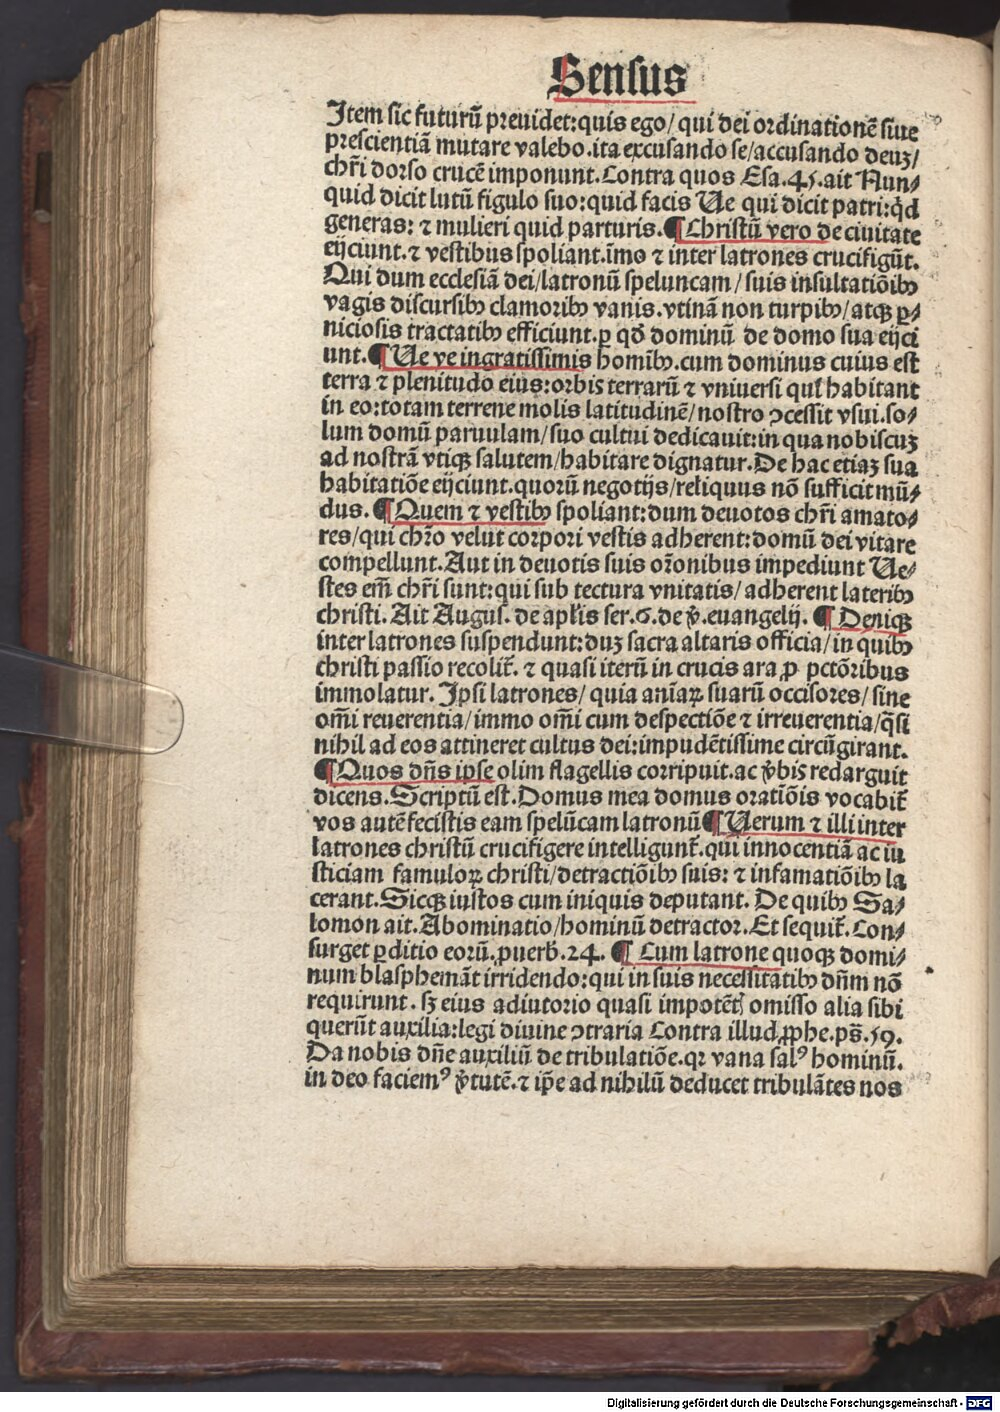 Sensus
Item sic futurū preuidet:quis ego/ qui dei ordinationē siue
prescientiā mutare valebo.ita excusando se/accusando deuʒ/
chr̄i dorso crucē imponunt.Contra quos Esa.45.ait Nun⸗
quid dicit lutū figulo suo:quid facis Ue qui dicit patri:qͥd
generas: ⁊ mulieri quid parturis.¶Christū vero de ciuitate
eijciunt.⁊ vestibus spoliant.īmo ⁊ inter latrones crucifigūt.
Qui dum ecclesiā dei/latronū speluncam/suis insultatiōibꝰ
vagis discursibꝰ clamoribꝰ vanis.vtinā non turpibꝰ/atqꝫ ꝑ⸗
niciosis tractatibꝰ efficiunt.ꝑ qḋ dominū de domo sua eijci
unt.¶Ue ve ingratissimis homībꝰ.cum dominus cuius est
terra ⁊ plenitudo eius:orbis terrarū ⁊ vniuersi qui habitant
in eo:totam terrene molis latitudinē/nostro ↄcessit vsui.so⸗
lum domū paruulam/suo cultui dedicauit:in qua nobiscuʒ
ad nostrā vtiqꝫ salutem/habitare dignatur.De hac etiaʒ sua
habitatiōe eijciunt.quorū negotijs/reliquus nō sufficit mū⸗
dus.¶Quem ⁊ vestibꝰ spoliant:dum deuotos chr̄i amato⸗
res/qui chr̄o velut corpori vestis adherent:domū dei vitare
compellunt.Aut in deuotis suis or̄onibus impediunt Ue⸗
stes em̄ chr̄i sunt:qui sub tectura vnitatis/adherent lateribꝰ
christi.Ait Augus.de apl̄is ser.6.de ꝟ.euangelij. ¶Deniqꝫ
inter latrones suspendunt:duʒ sacra altaris officia/in quibꝰ
christi passio recolit̄. ⁊ quasi iterū in crucis ara ꝓ pctōribus
immolatur. Ipsi latrones/ quia aniaꝝ suarū occisores/sine
om̄i reuerentia/immo om̄i cum despectiōe ⁊ irreuerentia/q̄si
nihil ad eos attineret cultus dei:impudētissime circūgirant.
¶Quos dn̄s ipse olim flagellis corripuit.ac ꝟbis redarguit
dicens.Scriptū est.Domus mea domus oratiōis vocabit̄
vos autē fecistis eam spelūcam latronū¶Uerum ⁊ illi inter
latrones christū crucifigere intelligunt̄.qui innocentiā ac iu
sticiam famuloꝝ christi/detractiōibꝰ suis: ⁊ infamatiōibꝰ la
cerant.Sicqꝫ iustos cum iniquis deputant. De quibꝰ Sa⸗
lomon ait.Abominatio/hominū detractor.Et sequit̄.Con⸗
surget ꝑditio eorū.ꝓuerb̄.24. ¶ Cum latrone quoqꝫ domi⸗
num blasphemāt irridendo:qui in suis necessitatibꝰ dn̄m nō
requirunt. sꝫ eius adiutorio quasi impotēti omisso alia sibi
querūt auxilia:legi diuine ↄtraria Contra illud ꝓphe.ps̄.59.
Da nobis dn̄e auxiliū de tribulatiōe.qꝛ vana salꝰ hominū.
in deo faciemꝰ ꝟtutē.⁊ ip̄e ad nihilū deducet tribulātes nos
Digitalisierung gefördert durch die Deutsche Forschungsgemeinschaft - DFG